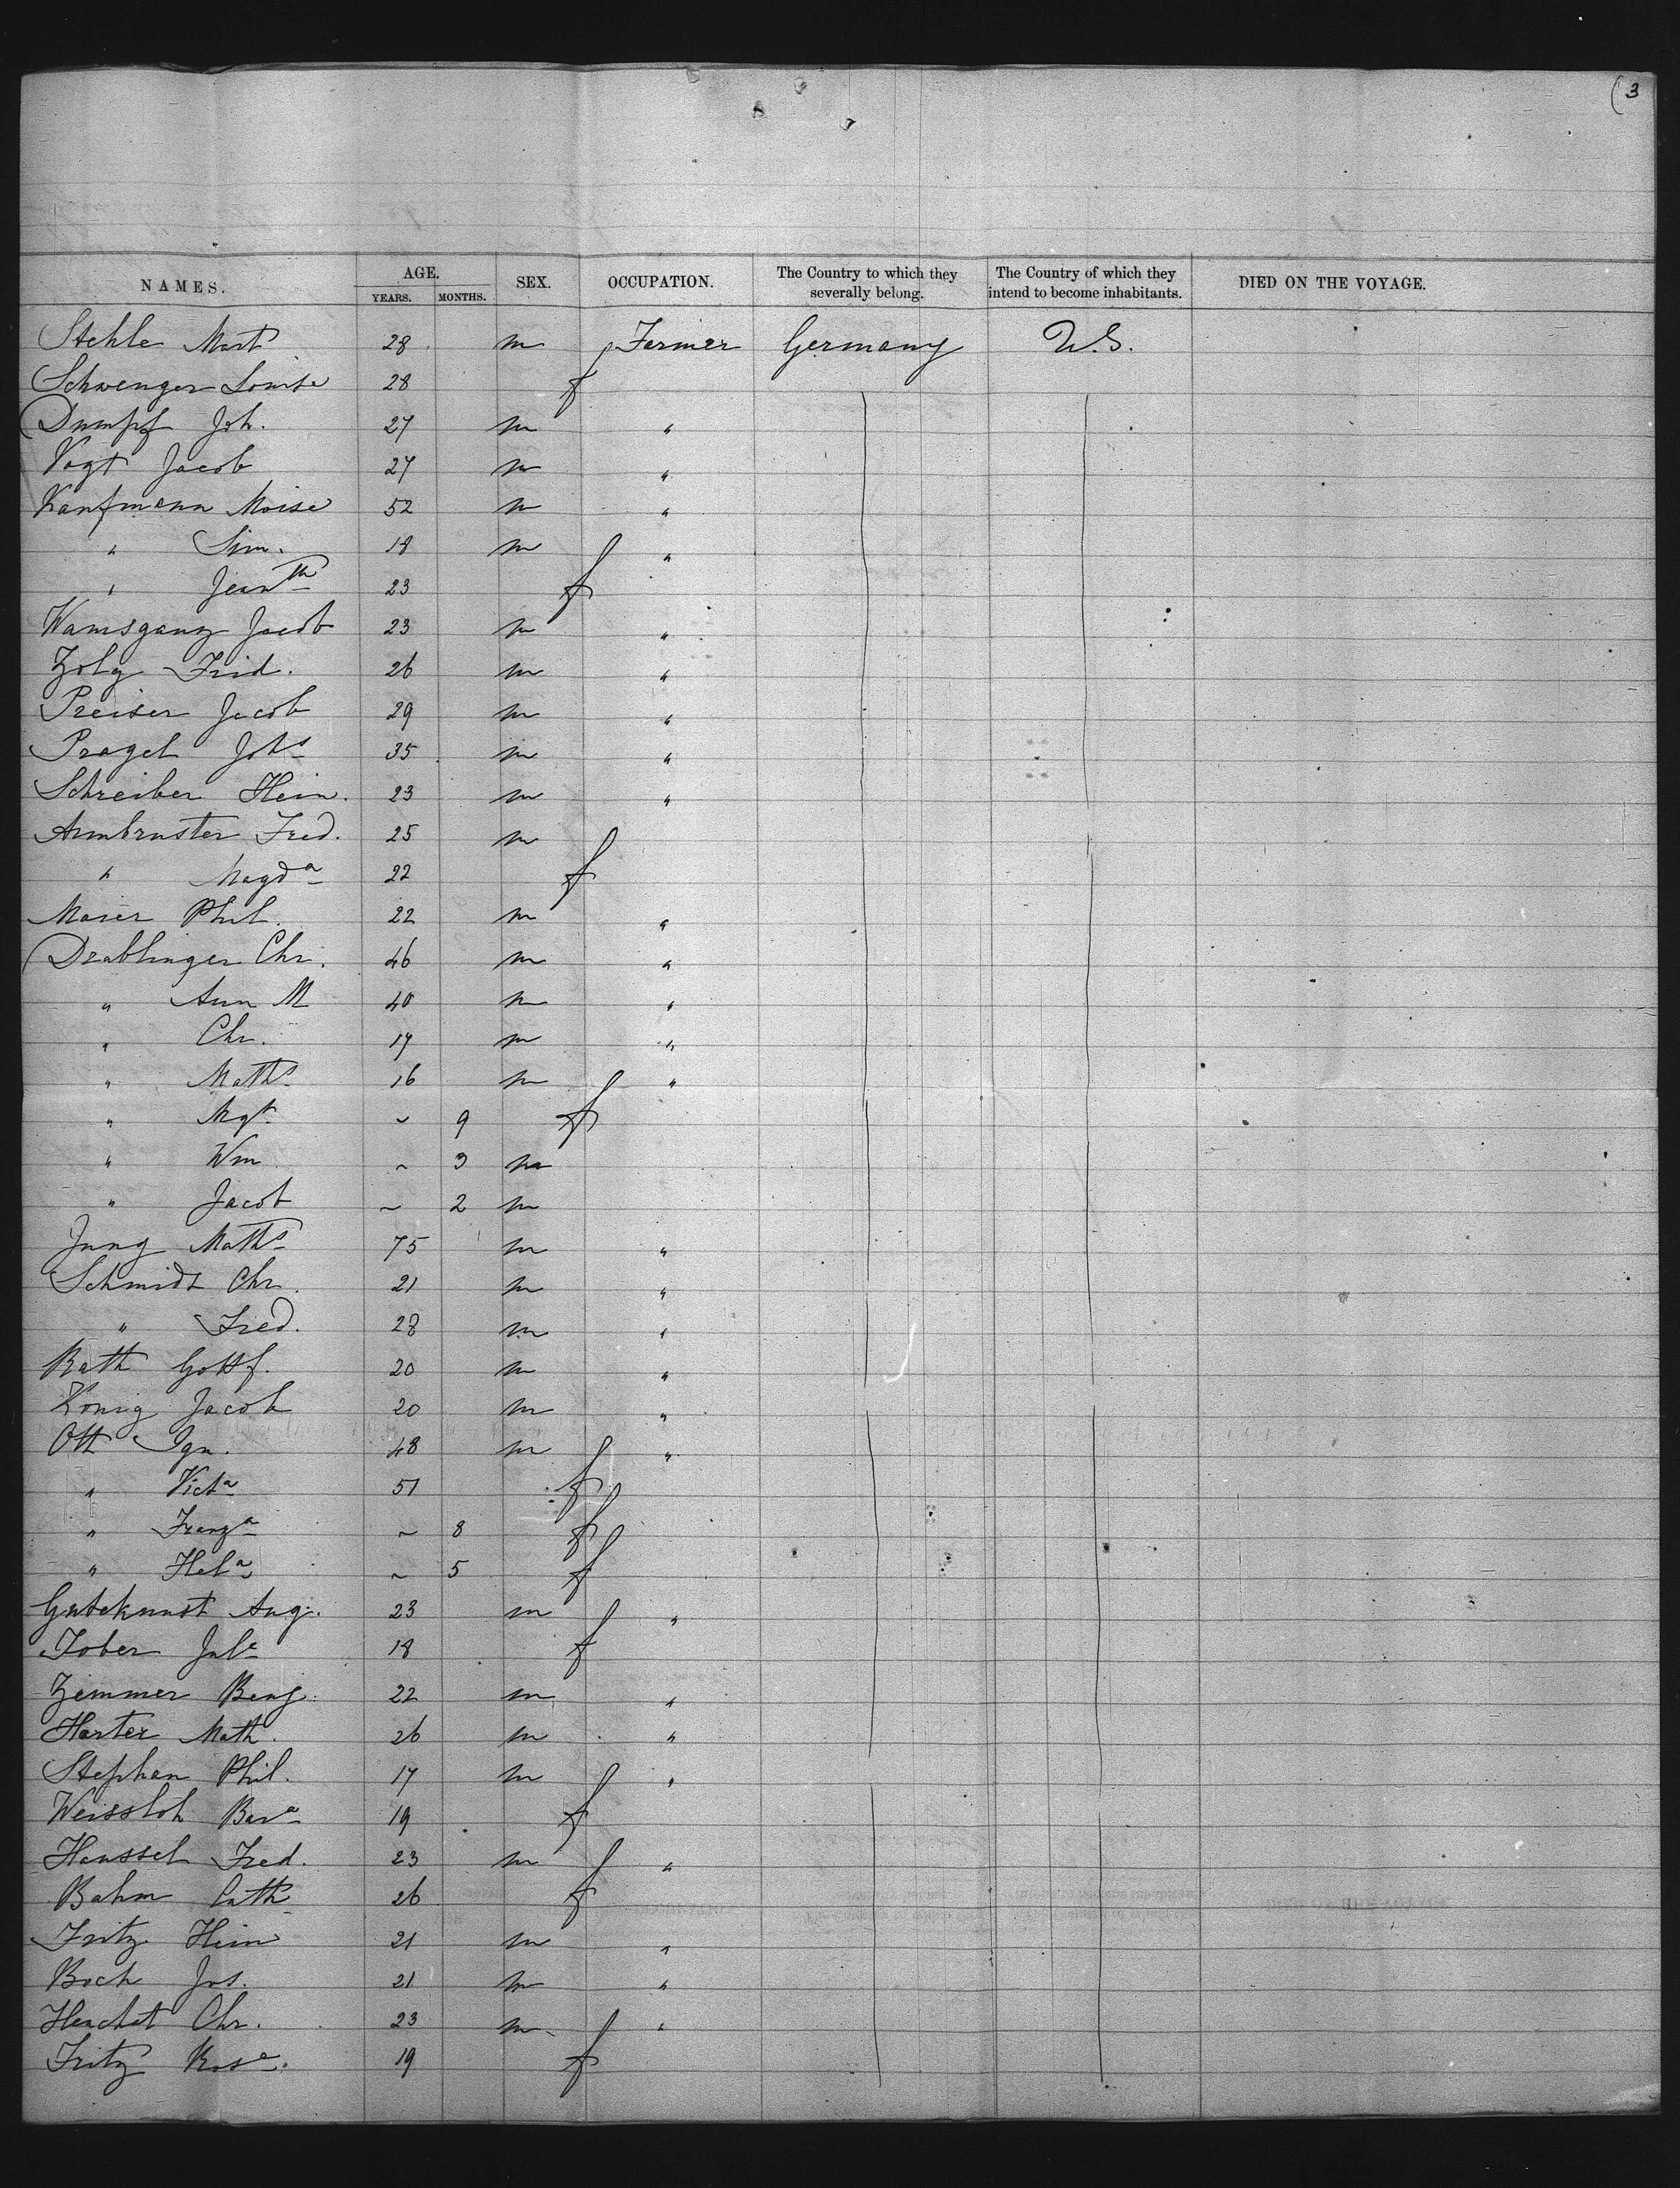 (3
NAMES. AGE. SEX. OCCUPATION. The Country to which they severally belong. The Country of which they intend to become inhabitants. DIED ON THE VOYAGE.
YEARS. MONTHS.
Stehle Mart 28 m Farmer Germany U.S.
Schwenger Louise 28 f
Dumpf Joh. 27 m "
Vogt Jacob 27 m "
Kaufmann Moise 52 m "
" Sim. 18 m "
" Jean 23 f
Wamsganz Jacob 23 m "
Zolg Frid. 26 m "
Preiser Jacob 29 m "
Pragel Johs 35 m "
Schreiber Hein. 23 m "
Armbruster Fred. 25 m
" Magda 22 f
Maier Phil. 22 m "
Drablinger Chr. 46 m "
" Ann M 40 m "
" Chr. 17 m "
" Maths 16 m "
" Mgt ~ 9 f
" Wm ~ 3 m
" Jacob ~ 2 m
Jung Maths 75 m "
Schmidt Chr. 21 m "
" Fred. 28 m "
Rath Gottf. 20 m "
König Jacob 20 m "
Ott Ign. 48 m "
" Victa 51 f
" Franza ~ 8 f
" Hela ~ 5 f
Gutekunst Aug. 23 m "
Tober Jule 18 f
Zimmer Benj. 22 m "
Harter Math. 26 m "
Stephan Phil. 17 m "
Weissloh Bara 19 f
Haussel Fred. 23 m "
Bahm Cath 26 f
Fritz Hein 21 m "
Boch Jos. 21 m "
Henchet Chr. 23 m "
Fritz Rosa. 19 f